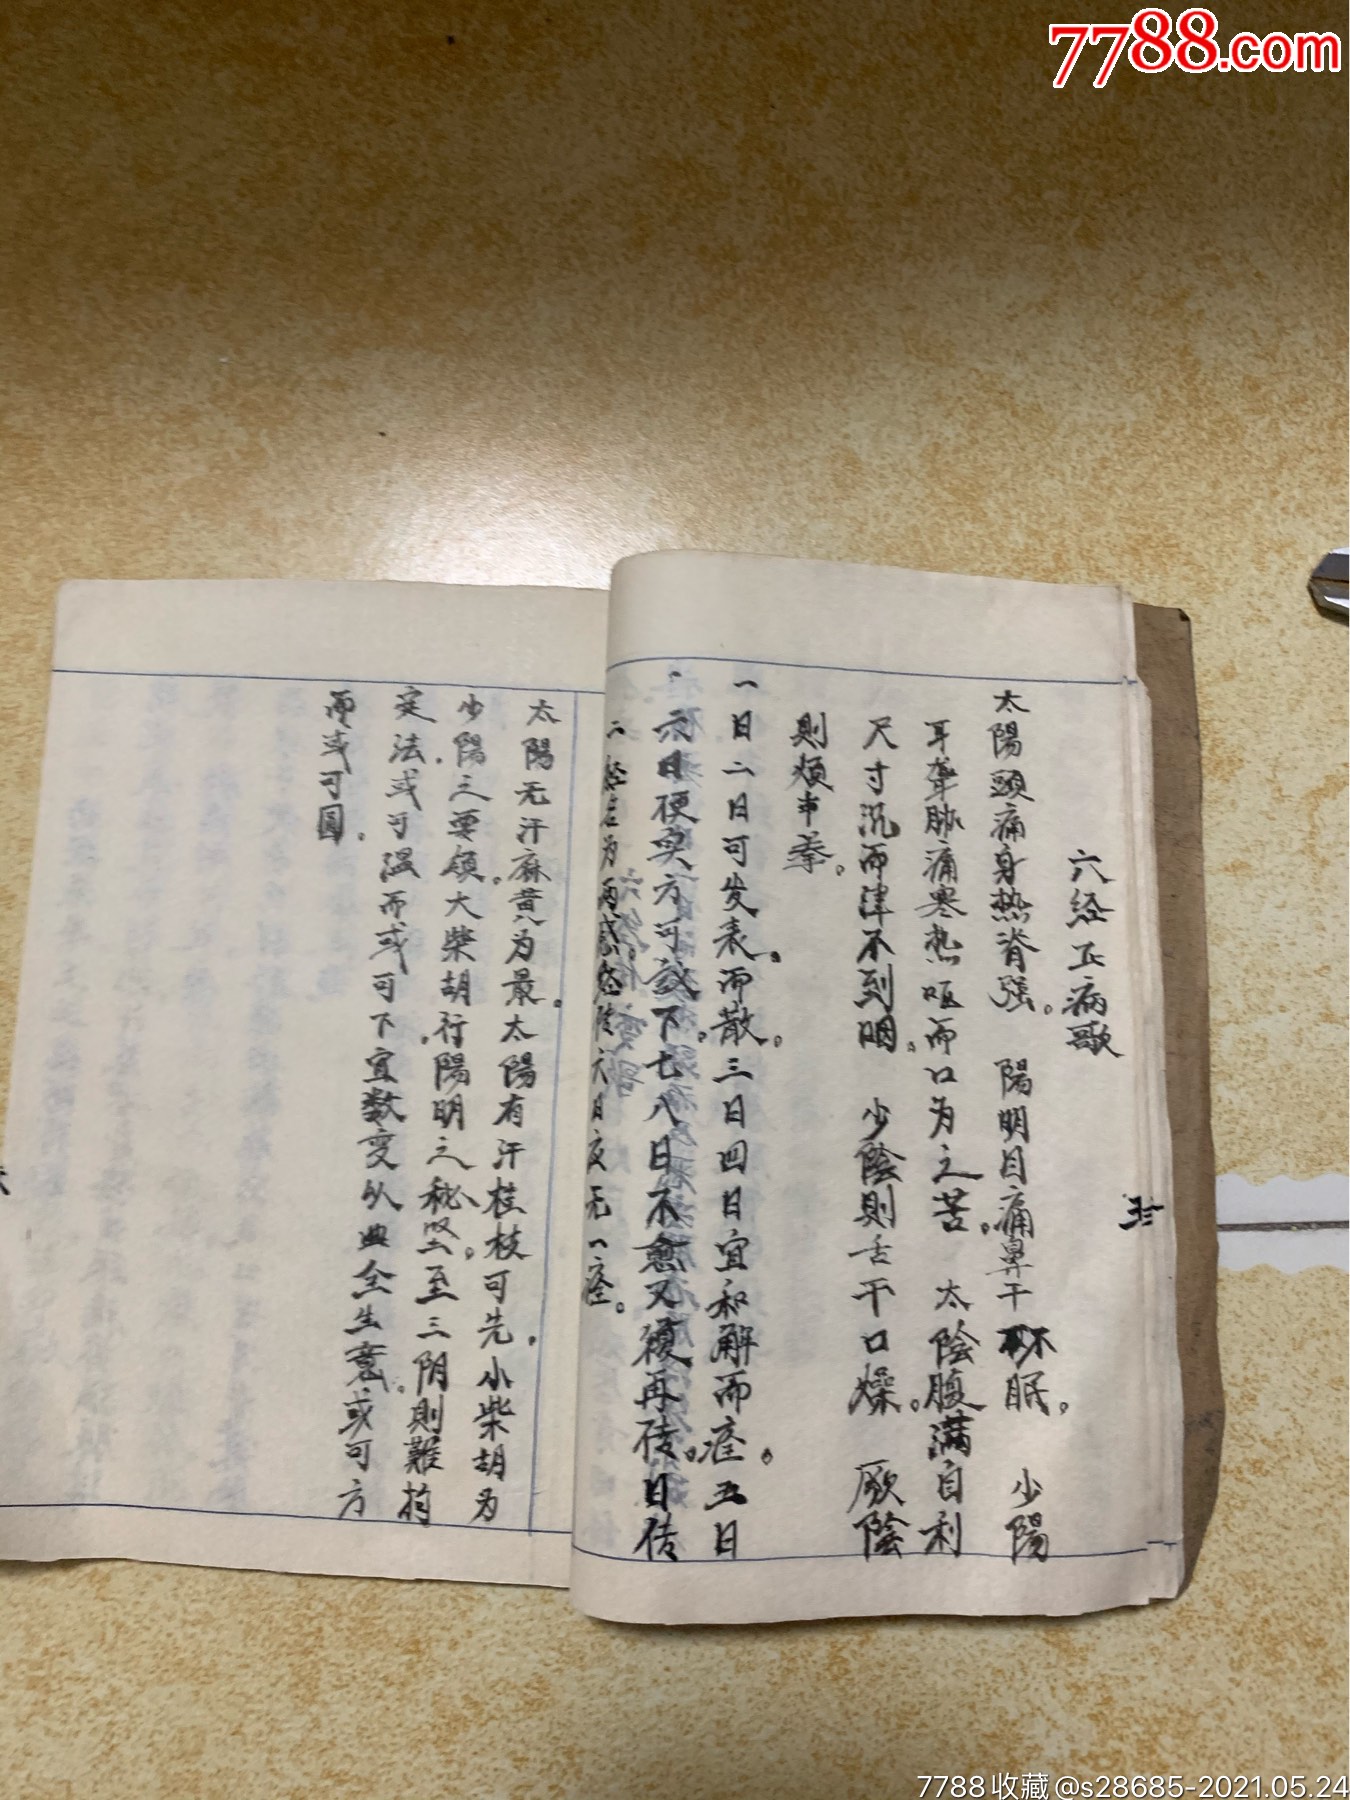 7788.com
六经正病歌
太陽頭痛身热脊强。 陽明目痛鼻干不眠。 少陽
耳聋胁痛寒热呕而口为之苦。 太陰腹满自利
尺寸沉而津不到咽。 少陰則舌干口燥。 厥陰
則烦
一日二日可发表。而散。三日四日宜和解而痊。五日
六日便实方可 下。七八日不愈又復再传。日传
二经 为两感 传六日 无一痊。
太陽无汗麻黄为最。太陽有汗桂枝可先。小柴胡为
少陽之要领。大柴胡行陽明之秘坚。至三阴則難拘
定法。或可温而或可下宜数变以典全生意。或可方
而或可圆。
7788收藏@s28685-2021.05.24